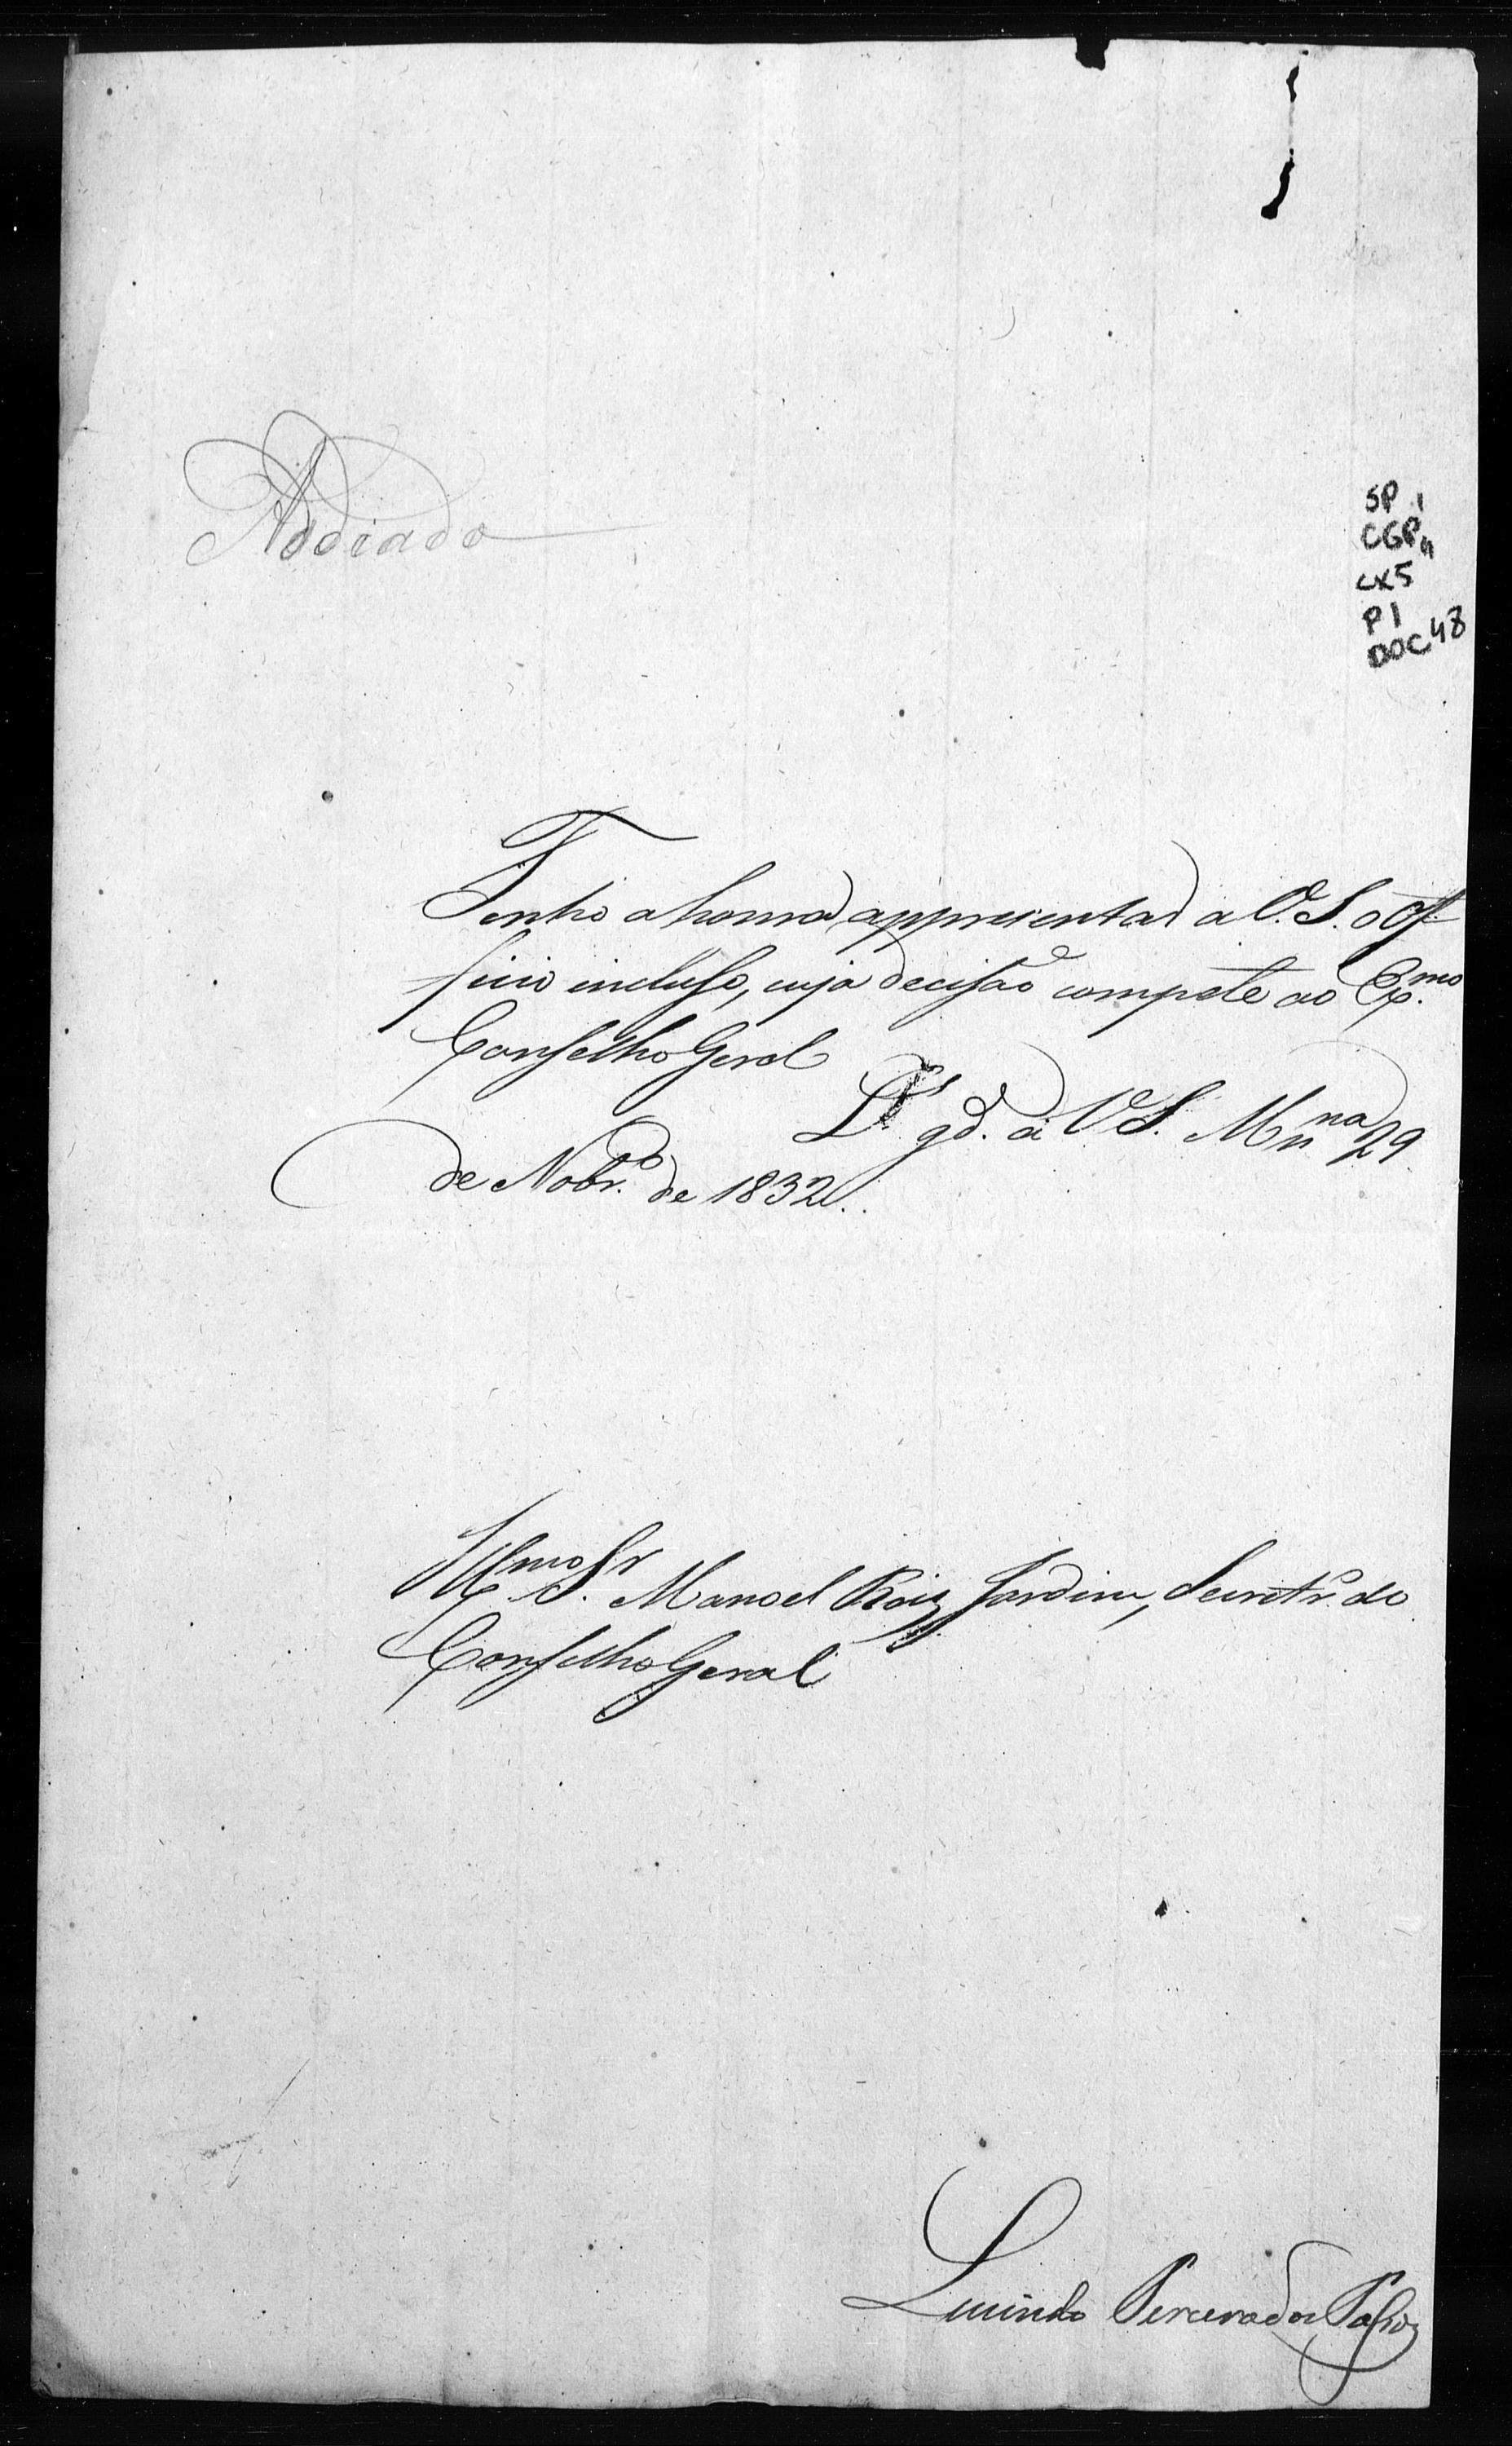 Addiado
SP 1
CGP 4
CX5
P1
DOC 48
Tenho a honra d appresentar a V. S. o Of
ficio incluso, cuja decisão compete ao Ex.mo
Conselho Geral
D.s gd.e a V S. Marn.na 29
de Nobr.o de 1832.
Ill.mo Sr. Manoel Roiz Jardim, Secretr.o do
Conselho Geral
Lucindo Pereira dos Passos